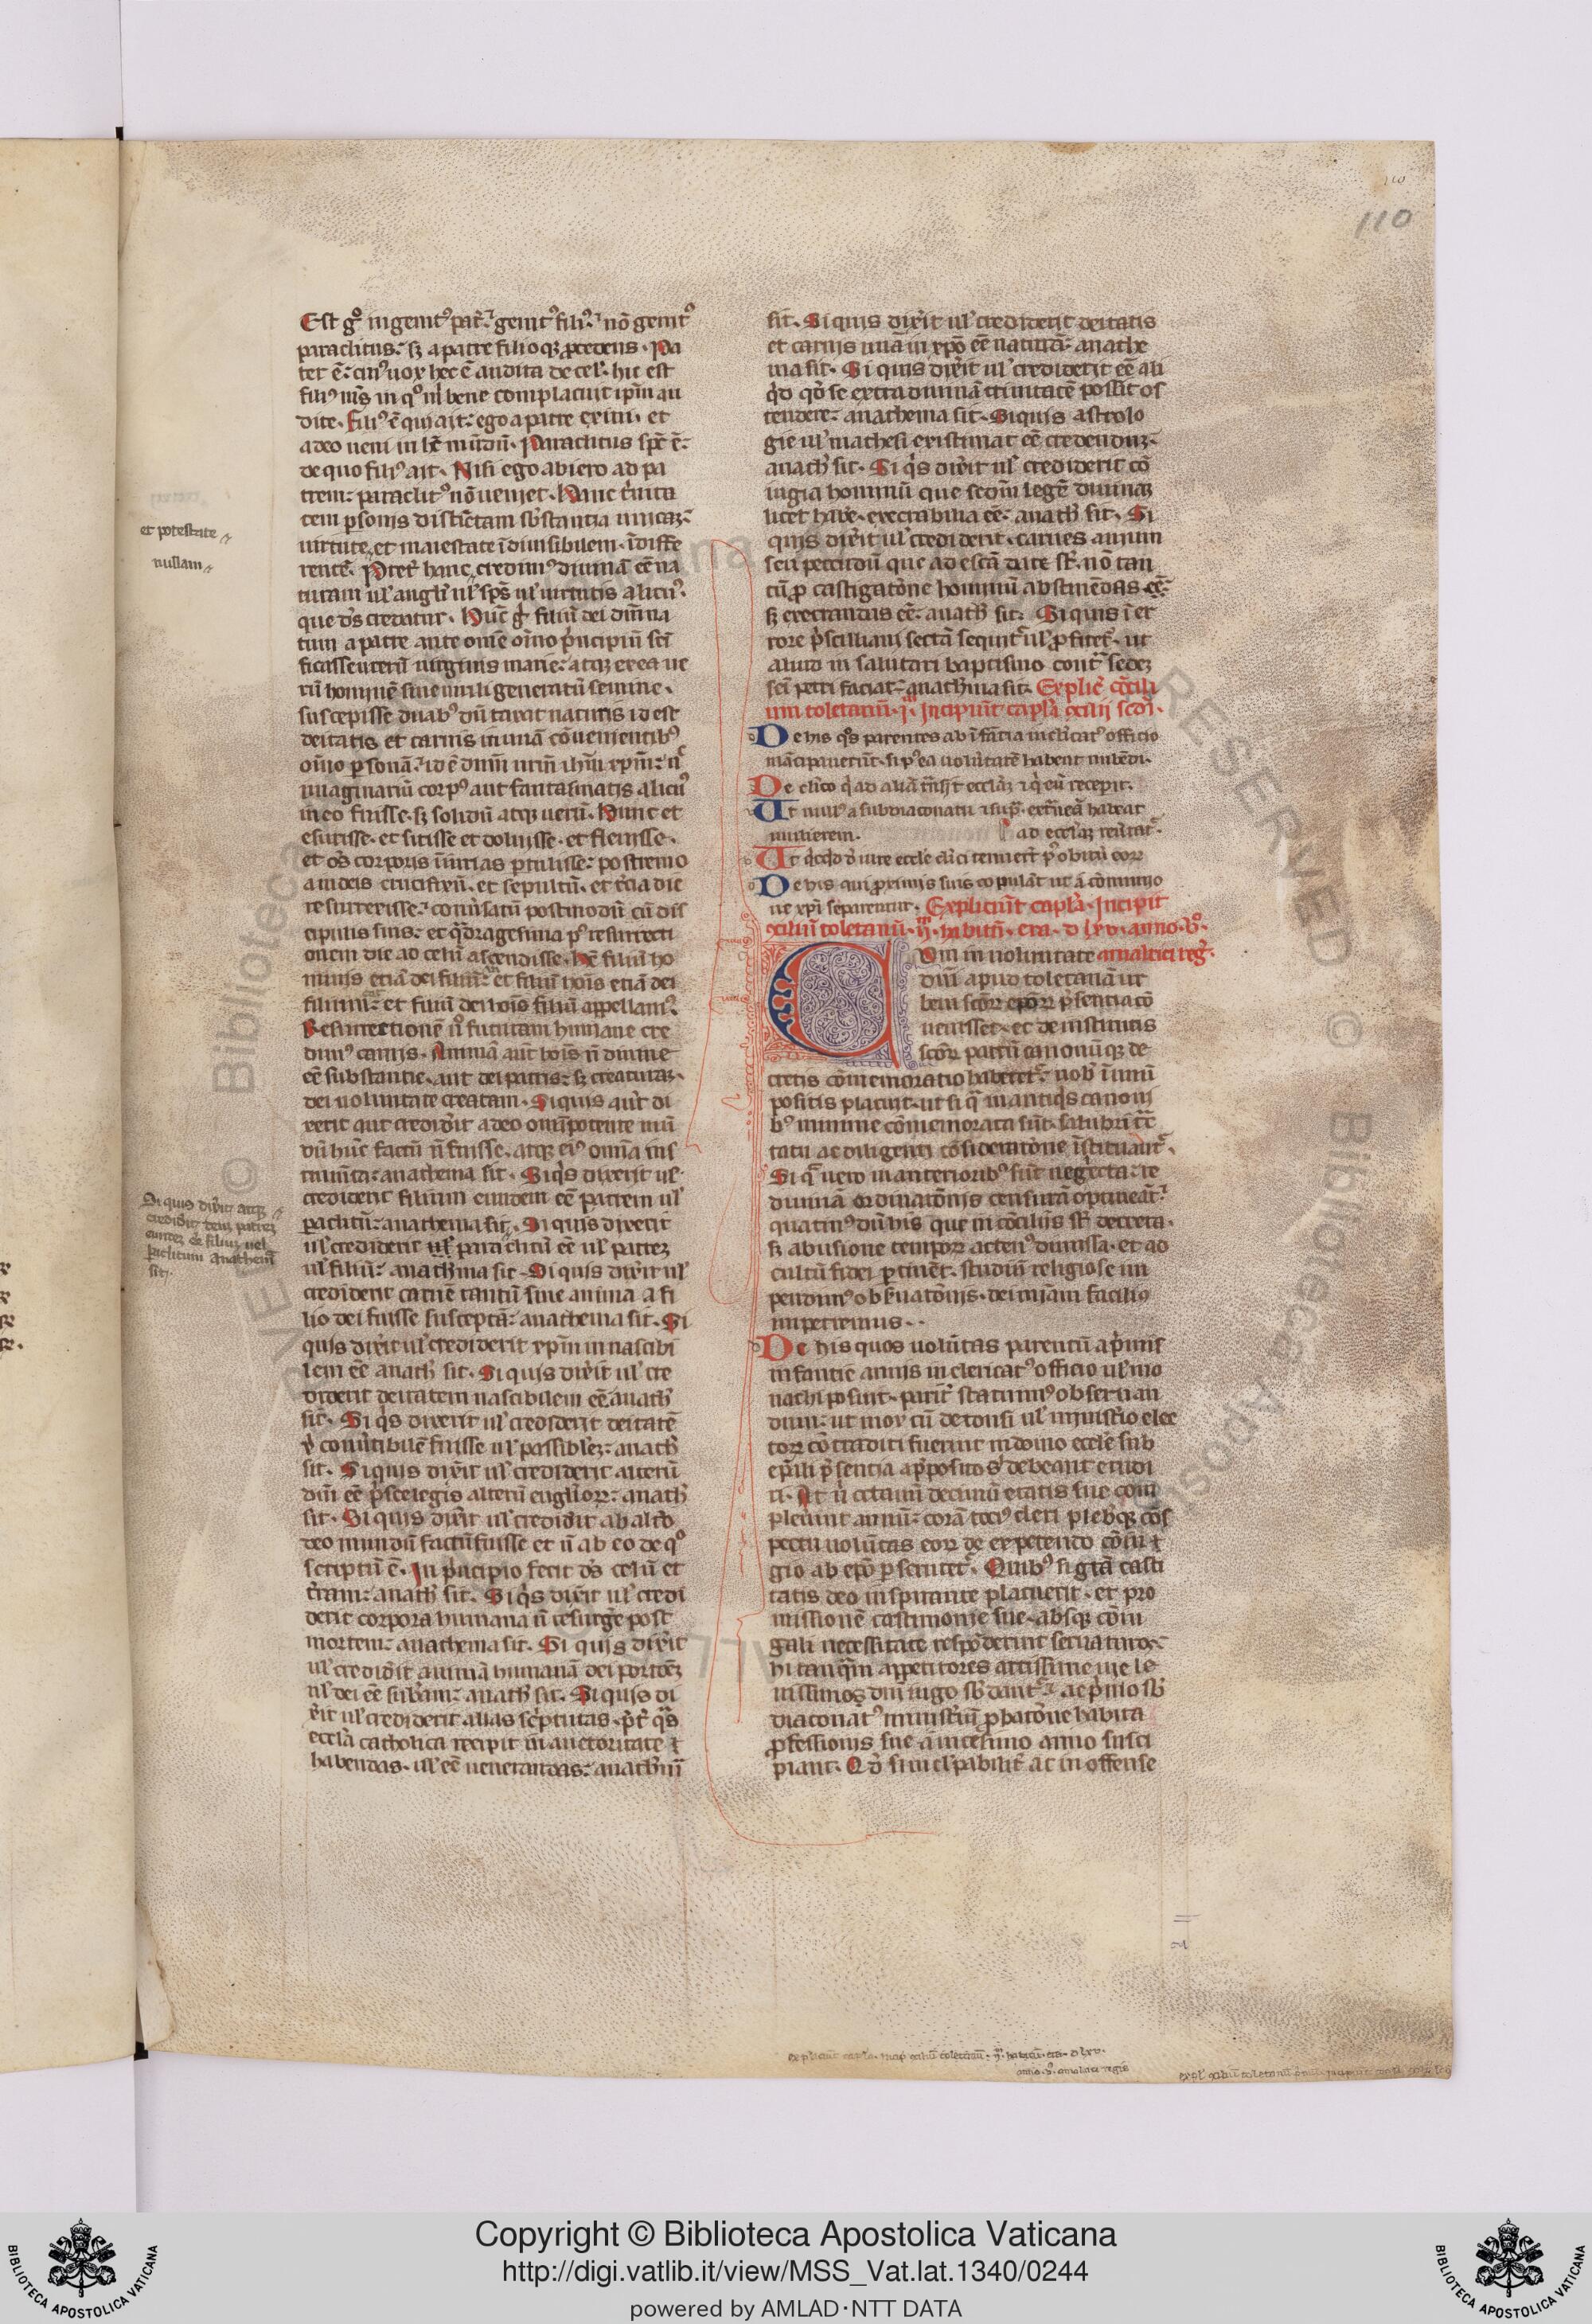 110
110
Est gͦ ingenitꝰ pat̃. genitꝰ filiꝰ. nõ genitꝰ
paraclitus. sꝫ a patre filioqꝫ ꝓcedens. Pa
ter ẽ. cuiꝰ uox hec ẽ audita de cel'. hic est
filiꝰ mꝰs in qͦ m̃ bene complacuit ip̃m au
dite. Filiꝰ ẽ qui ait. ego a patre exiui. et
a deo ueni in hẽ mũdũ. Paraclitus sp̃c ẽ.
de quo filiꝰ ait. Nisi ego abiero ad pa
trem. paraclitꝰ nõ ueniet. Hanc t'nita
tem ꝑsonis distĩctam sb̃stantia unicaꝫ.
uirtute et maiestate ĩdiuisibilem. ĩdiffe
rentẽ. Pret' hanc credimꝰ diuinã eẽ na
turam ul' angl'i ul' sp̃s ul' uirtutis alicuiꝰ.
que d's credatur. Hũc g̃ filiũ dei dm̃ na
tum a patre ante om̃e oĩno p'ncipiũ sc̃i
ficasse uterũ uirginis marie. atqꝫ ex ea ue
rũ hominẽ sine uirili generatũ semine.
suscepisse duabꝰ dũ taxat naturis id est
deitatis et carnis in unã cõuenientibꝰ
oĩno ꝑsonã. id ẽ dñm nr̃m ih̃m xp̃m. n̾
imaginariũ corpꝰ aut fantasmatis alicuiꝰ
in eo fuisse. sꝫ solidũ atqꝫ uerũ. Hunc et
esurisse. et sitisse et doluisse. et fleuisse.
et oẽs corporis iniurias ꝑtulisse. postremo
a iudeis crucifixũ. et sepultũ. et t'cia die
resurrexisse. conu'satũ postmodũ cũ dis
cipulis suis. et q̃dragesima pꝰ resurrecti
onem die ad celũ ascendisse. hẽ filiũ ho
minis etiã dei filiũ. et filiũ ho'is etiã dei
filium. et filiũ dei ho'is filiũ appellamꝰ.
Resurrectionẽ uͦ futuram humane cre
dimꝰ carnis. Animã aut̃ ho'is ñ diuine
eẽ substantie. aut dei patris. sꝫ creaturaꝫ.
dei uoluntate creatam. Si quis aut̃ di
xerit aut credid'it a deo om̃ipotente mũ
dũ hũc factũ ñ fuisse. atqꝫ eiꝰ om̃ia ins
trum̃ta. anathema sit. Si q's dixerit ul'
crediderit filium eundem eẽ patrem ul'
ꝑaclitũ. anathema sit. Si quis dixerit
ul' crediderit ul' paraclitũ eẽ ul' patreꝫ
ul' filiũ. anathema sit. Si quis dix'it ul'
crediderit carnẽ tantũ sine anima a fi
lio dei fuisse susceptã. anathema sit. Si
quis dix'it ul' crediderit xp̃m innascibi
lem eẽ anath' sit. Si quis dix'it ul' cre
diderit deitatem nascibilem eẽ. anath'
sit. Si q's dixerit ul' crediderit deitatẽ
x' conu'tibilẽ fuisse ul' passibl'eꝫ. anath'
sit. Si quis dix'it ul' crediderit alterũ
dm̃ eẽ p'sce legis alterũ eug̃lioꝝ. anath'
sit. Si quis dix'it ul' credid'it ab alt'o
deo mundũ factũ fuisse et ñ ab eo de qͦ
scriptũ ẽ. In p'ncipio fecit d's celũ et
t'ram. anath' sit. Si q's dix'it ul' credi
derit corpora humana ñ resurg'e post
mortem. anathema sit. Si quis dix'it
ul' credid'it animã humanã dei portiõeꝫ
ul' dei eẽ sub̃am. anath' sit. Si quis di
x'it ul' crediderit alias sc'pturas. p't̃ q̃s
eccl'a catholica recipit in auctoritate ꝛ
habendas. ul' eẽ uenerandas. anath'm̃
et potestate
nullam
Si quis dix'it atqꝫ
credid'it
filiuꝫ uel
ꝑaclitum anathem̃
sit.
sit. Si quis dix'it ul' crediderit deitatis
et carnis unã in xp̃o eẽ naturã. anathe
ma sit. Si quis dix'it ul' crediderit eẽ ali
q'd qð se extra diuinã trinitatẽ possit os
tendere. anathema sit. Si quis astrolo
gie ul' mathesi existimat eẽ credenduꝫ.
anath' sit. Si q's dix'it ul' crediderit cõ
iugia hominũ que scd̃m legẽ diuinaꝫ
licet hab'e. execrabilia eẽ. anath' sit. Si
quis dix'it ul' crediderit. carnes auium
seu pecudũ que ad escã date st̃. nõ tan
tũ ꝓ castigatõne hominũ abstinẽdas eẽ.
sꝫ execrandas eẽ. anath' sit. Si quis ĩ er
rore p'scilliani sectã sequit̃ ul' ꝓfitet̃. ut
aliud in salutari baptismo cont̃ sedeꝫ
sc̃i petri faciat. anath'ma sit. Explic' cõcili
um toletanũ. j̃. Incipiũt capl'a ꝯcilij scd̃i.
De his q̃s parentes ab ĩfãcia in cl'icatꝰ officio
mãcipauerũt. si pꝰea uolũtatẽ habent nubẽdi.
De cl'ico q' ad aliã t̃nsit eccl'aꝫ ꝛ q' eũ recepit.
Ut nullꝰ a subdiaconatu ꝛ sup̃. extr̃neã habeat
mulierem. ad eccl'aꝫ reu'tat̃.
Ut q'cq'd d' iure eccl'e cl'ici tenuer̃t pꝰ obitũ eoꝝ
De his qui ꝓximis suis copulãt̃ ut a cõmunio
ne xp̃i separentur. Expliciũt capl'a. Incipit
ꝯciliũ toletanũ. ij̃. habitũ. era. d lxv. anno. vͦ.
Cum in uoluntate amalrici reg̃.
dm̃i apud toletanã ur
bem sc̃oꝝ ep̃oꝝ p'sentia cõ
uenisset. et de institutis
sc̃oꝝ patrũ canonũqꝫ de
cretis cõmemoratio haberet̃. nob' ĩ unũ
positis placuit. ut si q̃ in antiq's canoni
bꝰ minime cõmemorata sũt. salubri t̃c
tatu ac diligenti cõsideratõne ĩstituant̃.
Si q̃ uero in anteriorib' sũt neg'lecta. re
diuiuã ordinatõnis censurã optineãt.
quatinꝰ dũ his que in cõcilijs st̃ decreta.
sꝫ abusione tempoꝝ actenꝰ dimissa. et ad
cultũ fidei ꝑtinẽt. studiũ religiose im
pendimꝰ obs'uatõnis. dei mĩam faciliꝰ
impetremus.
De his quos uolũtas parentũ a p'mis
infantie annis in clericatꝰ officio ul' mo
nachi posuit. parit̃ statuimꝰ obseruan
dum. ut mox cũ detonsi ul' minist'io elec
toꝝ cõtraditi fuerint in domo eccl'e sub
ep̃ali p'sentia a p'posito s' debeant erudi
ri. At ũ octauũ decimũ etatis sue com
pleuint annũ. corã tociꝰ cleri plebqꝫ cõs
pectu uolũtas eoꝝ de expetendo cõiu
gio ab ep̃o ꝑscrutet̃. Quibꝰ si gr̃a casti
tatis deo inspirante placuerit. et pro
missionẽ castimonie sue. absqꝫ cõiu
gali necessitate respõderint seruaturos.
hi tanq̃m appetitores artissime uie le
uissimo dm̃i iugo sb'dant̃. ac p'mo sb'
diaconatꝰ minist'iũ ꝓbatõne habita
ꝓfessionis sue a uicesimo anno susci
piant. Qð si inculpabilit̃ ac inoffense
expliciũt capl'a. incip̃ ꝯciliũ toletanũ. ij̃. habitũ. era. d lxv.
anno. vͦ. amalrici regis
expl' ꝯciliũ toletanũ
Copyright © Biblioteca Apostolica Vaticana
http://digi.vatlib.it/view/MSS_Vat.lat.1340/0244
powered by AMLAD·NTT DATA
BIBLIOTECA APOSTOLICA VATICANA
BIBLIOTECA APOSTOLICA VATICANA